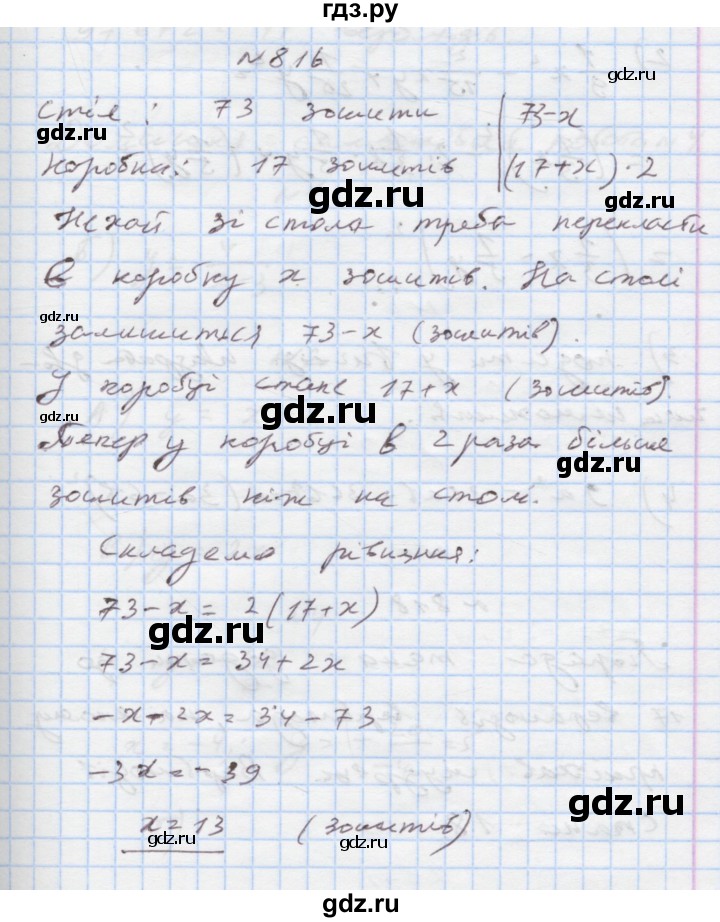 гдз.ру
№816
стіл: 73 зошити 73-x
gdz.ru
gdz.ru
коробка: 17 зошитів (17+x)·2
gdz.ru
Нехай зі стола треба перекласти
gdz.ru
в коробку x зошитів. На столі
gdz.ru
залишиться 73-x (зошитів).
gdz.ru
У коробці стане 17+x (зошитів).
gdz.ru
gdz.ru
Тепер у коробці в 2 раза більше
gdz.ru
зошитів ніж на столі.
Складемо рівняння:
73-x = 2(17+x)
gdz.ru
gdz.ru
73-x = 34+2x
-x-2x = 34-73
gdz.ru
-3x = -39
gdz.ru
gdz.ru
x = 13 (зошитів)
gdz.ru
gdz.ru
gdz.ru